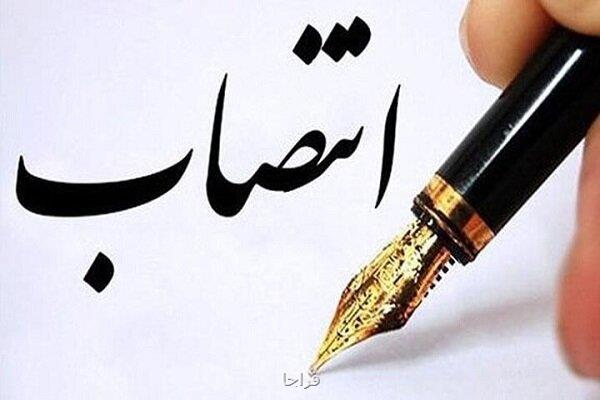 انتصاب
فراجا